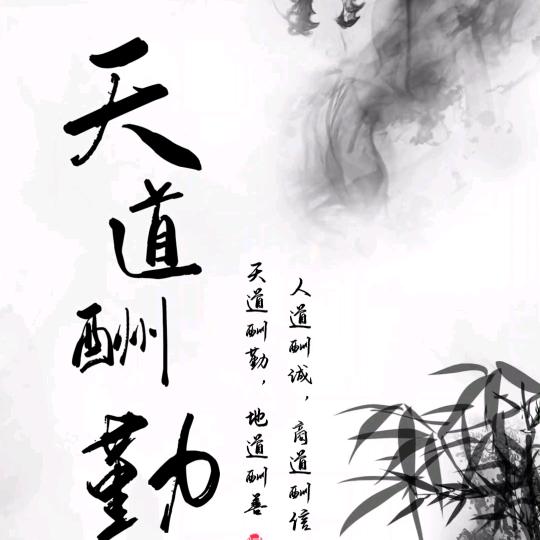 天道酬勤
天道酬勤，地道酬善
人道酬诚，商道酬信